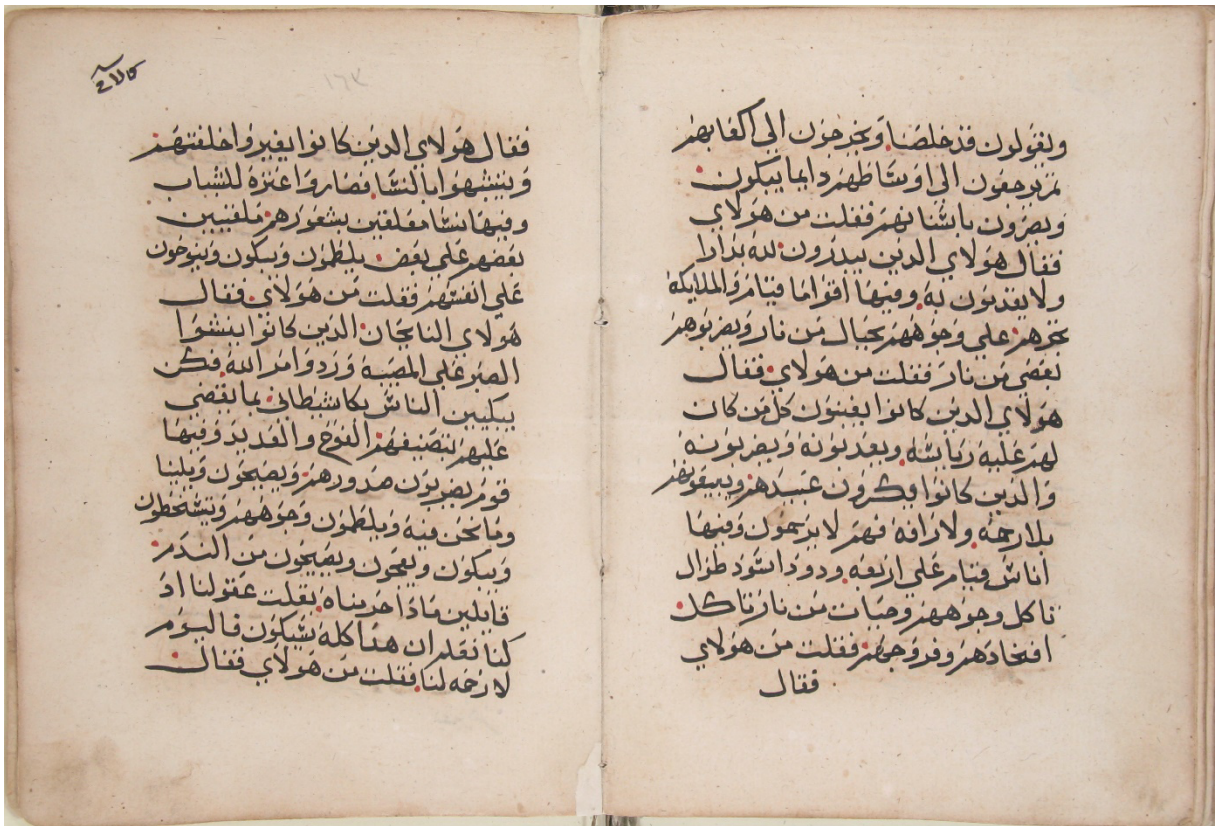 ويقولون قد خلصنا ويخرجون الي اكعابهم
ثم يرجعون الي اوساطهم دايما يبكون
ويصرون باسنانهم فقلت من هولاي
فقال هولاي الدين يندرون لله ندارا
ولا يفديون به وفيها اقواما قيام والملايكه
تجرهم علي وجوههم بحبال من نار ويضربوهم
بعصي من نار فقلت من هولاي فقال
هولاي الدين كانوا يفتنون كل من كان
لهم عليه رياسه ويعدبونه ويضربونه
والدين كانوا يكرون عبيدهم ويبيعونهم
بلا رحمه ولا رافه فهم لا يرحمون وفيها
اناس قيام علي اربعه ودود اسود طوال
تاكل وجوههم وحيات من نار تاكل
افخادهم وفروجهم فقلت من هولاي
فقال
١٦٣
فقال هولاي الدين كانوا يغيروا خلقتهم
ويتشبهوا بالنسا فصاروا عتره للشباب
وفيها نسا معلقين بشعورهم ملفتين
بعضهم علي بعض يلطمون ويبكون وينوحون
علي انفسهم فقلت من هولاي فقال
هولاي النايحات الدين كانوا ينسوا
الصبر علي المصيبه وردوا امر الله فكن
يبكيين الناس بكا شيطاني بما يقضي
عليهم بتصنيفهم النوح والتعديد وفيها
قوم يضربون صدورهم ويصيحون ويلينا
وما نحن فيه ويلطمون وجوههم ويتسخطون
ويبكون وينحون ويصيحون من الندم
قايلين مادا احرمناه بقلت عقولنا اد
كنا نعلم ان هدا كله يتيكون فاليوم
لا رحمه لنا فقلت من هولاي فقال